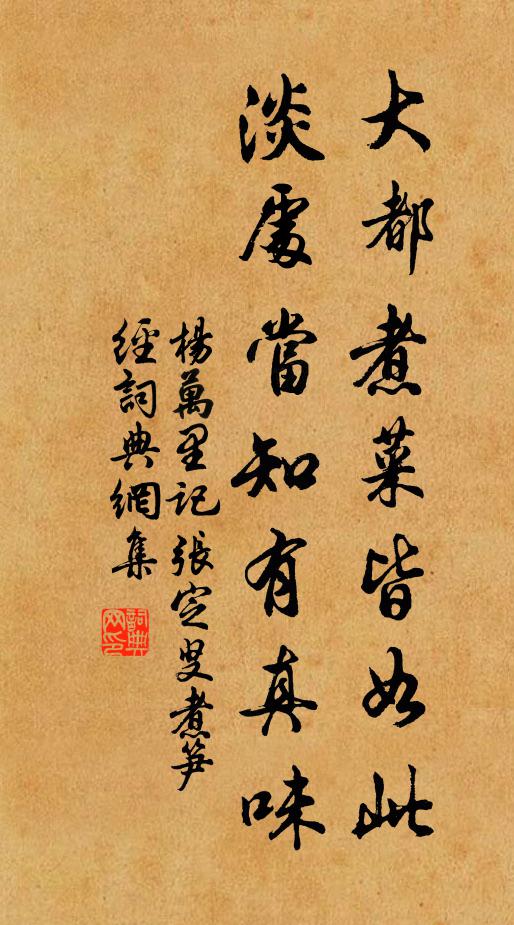 大都煮菜皆如此
淡處當知有真味
楊萬里記張定叟煮笋
經詞典網集
詞典
网印